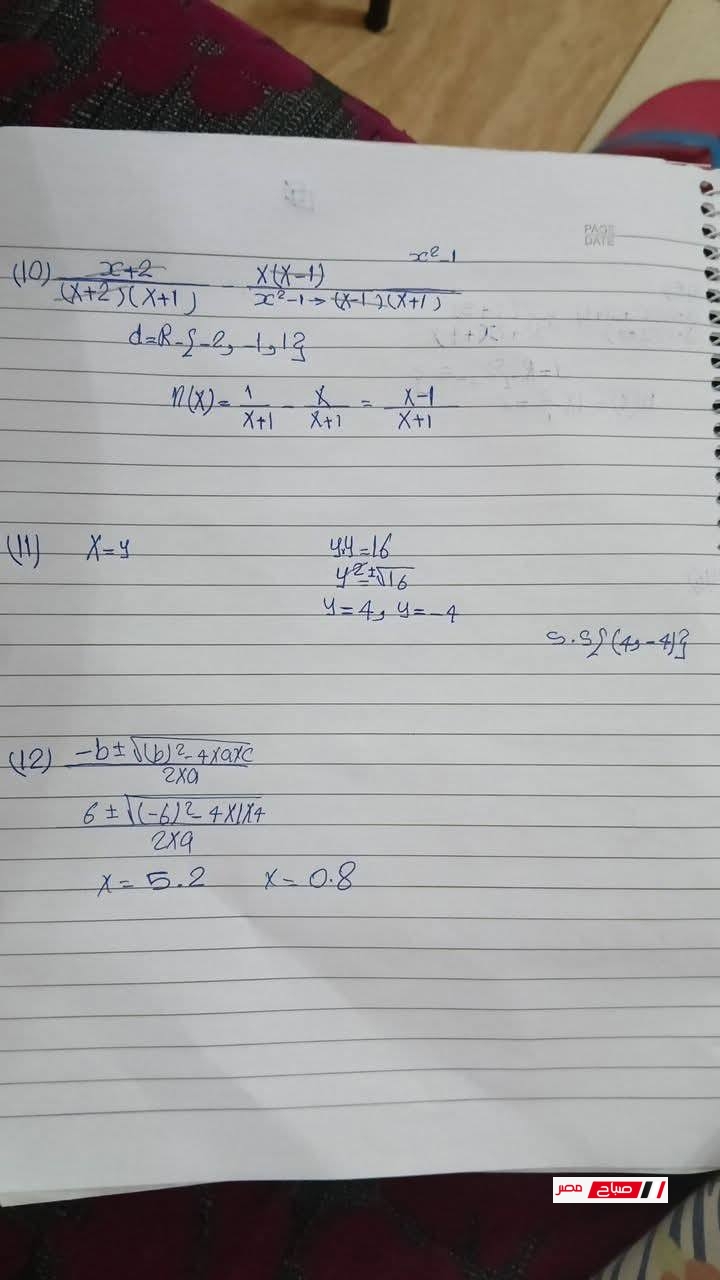 PAGE
DATE
x²-1
(10) x+2/(x+2)(x+1) - x(x-1)/x²-1→(x-1)(x+1)
d=R-{-2, -1, 1}
n(x)= 1/x+1 - x/x+1 = x-1/x+1
(11) x=y y.y=16
y²=±√16
y=4, y=-4
S.S{(4,-4)}
(12) -b±√(b)²-4×a×c/2×a
6±√(-6)²-4×1×4/2×a
x=5.2 x=0.8
صباح مصر